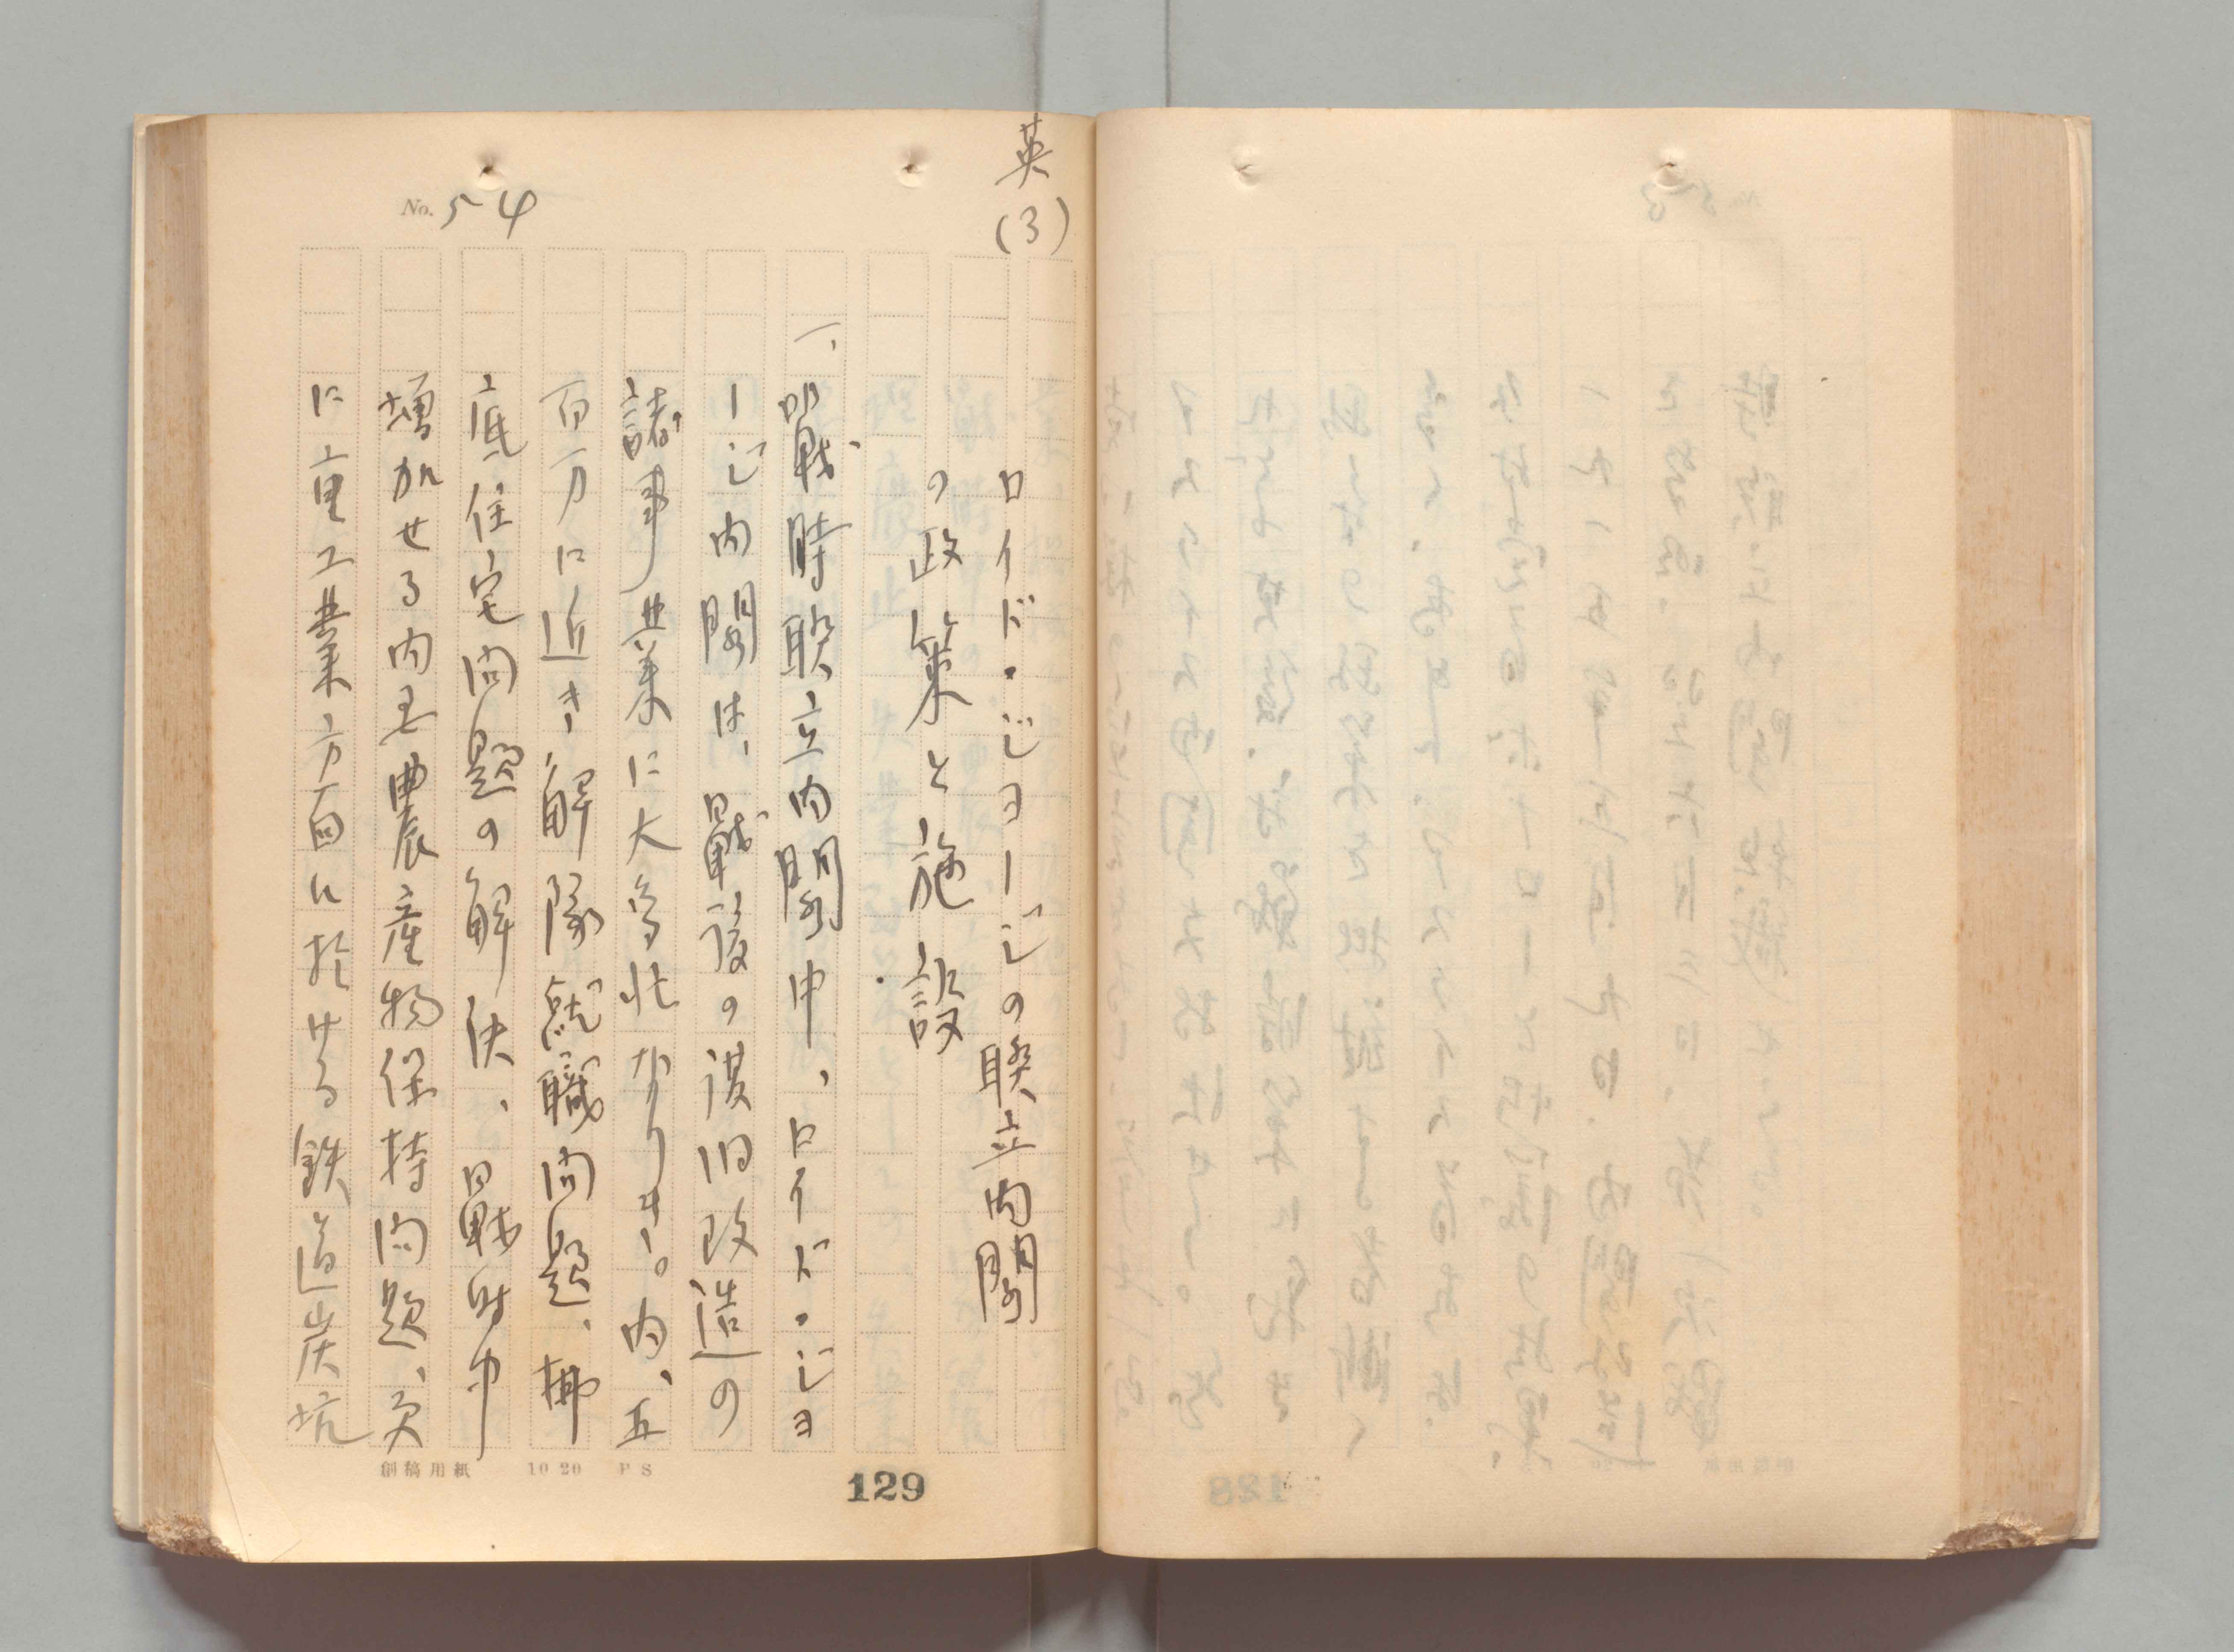 英
(3)
No. 54
ロイド・ジヨージの聯立内閣
の政策と施設
一、戦時聯立内閣中、ロイド・ジヨ
ージ内閣は、戦後の復旧改造の
諸事業に大多忙なりき。内、五
百万に近き解隊就職問題、
底住宅問題の解決、戦時中
増加せる内 農産物保持問題、
に重工業方面に於ける鉄道炭坑
創稿用紙 10 20 P S
129